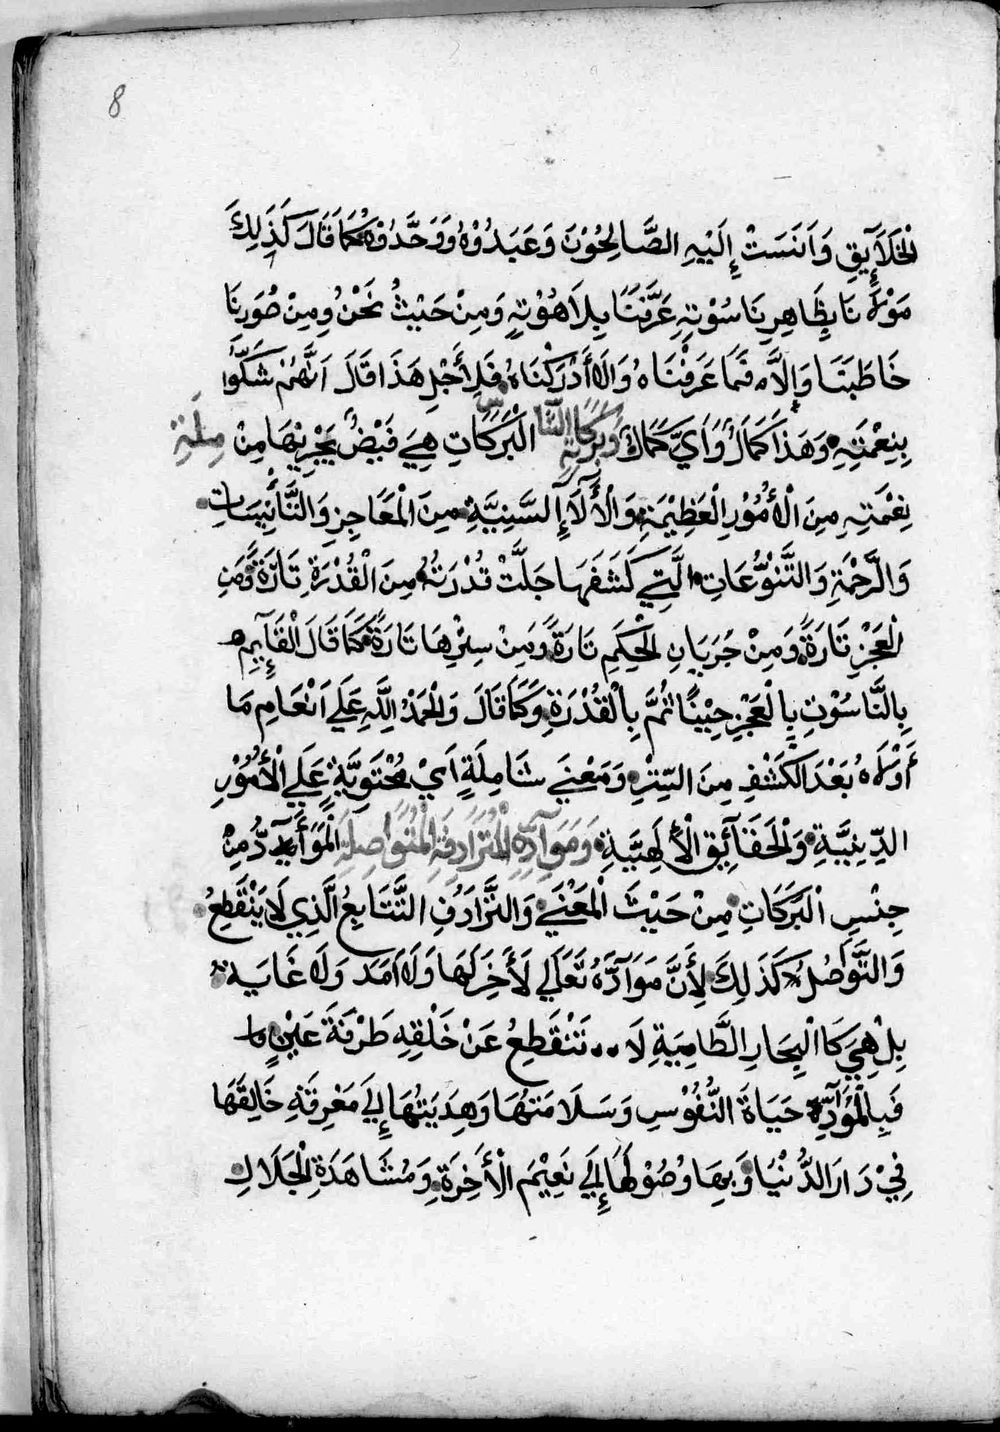 8
الْخَلَآئِقِ وَاَنَسَتْ إِلَيْهِ الصَّالِحُوْنَ وَعَبَدُوْهُ وَوَحَّدُوْهُ كَمَا قَالَ كَذَلِكَ
مَوْلَانَا بِظَاهِرِ نَاسُوْتِهِ عَرَّفَنَا بِلَاهُوْتِهِ وَمِنْ حَيْثُ نَحْنُ وَمِنْ صُوَرِنَا
خَاطَبَنَا وَإِلَّا مَا عَرَفْنَاهُ وَلَا أَدْرَكْنَاهُ فَلِأَجْلِ هَذَا قَالَ اَنَّهُمْ شَكَّوُا
بِنِعْمَتِهِ وَهَذَا كَمَالٌ وَاَيَّ كَمَالٌ وَبَرَكَاتِهِ الْبَرَكَاتِ هِيَ فَيْضٌ يَجْرِيْهَا مِنْ
نِعْمَتِهِ مِنَ الْأُمُوْرِ الْعَظِيْمَةِ وَالْأَلَآءِ السَّنِيَّةِ مِنَ الْمَعَاجِزِ وَالتَّأْنِيْسَاتِ
وَالرَّحْمَةِ وَالتَّنَوُّعَاتِ الَّتِي كَشَفَهَا جَلَّتْ قُدْرَتُهُ مِنَ الْقُدْرَةِ تَارَةً وَمِنَ
الْعَجْزِ تَارَةً وَمِنْ جُرَيَانِ الْحِكَمِ تَارَةً وَمِنْ سِتْرِهَا تَارَةً كَمَا قَالَ الْقَآئِمِ
بِالنَّاسُوْتِ بِالْعَجْزِ حِيْنًا ثُمَّ بِالْقُدْرَةِ وَكَمَا قَالَ وَالْحَمْدُ لِلَّهِ عَلَى اَنْعَامِ مَا
أَوْلَاهُ بَعْدَ الْكَشْفِ مِنَ السِّتْرِ وَمَعْنَى شَامِلَةٍ اَيْ مُحْتَوِيَّةٍ عَلَى الْأُمُوْرِ
الدِّيْنِيَّةِ وَالْحَقَآئِقِ الْأَلَهِيَّةِ وَمَوَآدِّهِ الْمُتَرَادِفَةِ الْمُتَوَاصِلَةِ الْمَوَآدُّ مِنْ
جِنْسِ الْبَرَكَاتِ مِنْ حَيْثَ الْمَعْنَى وَالتَّرَادُفِ التَّتَابِعُ الَّذِي لَا يَنْقَطِعُ
وَالتَّوَصُلُ كَذَلِكَ لِأَنَّ مَوَآدَّهُ تَعَالَى لَا آخِرَ لَهَا وَلَا اَمَد وَلَا غَايَة
بَلْ هِيَ كَا الْبِحَارِ الطَّامِيَةِ لَا تَنْقَطِعُ عَنْ خَلْقِهِ طَرْفَةَ عَيْنٍ
فَبِالْمَوَآدِّ حَيَاةَ النُّفُوْسِ وَسَلَامَتَهَا وَهِدَيَتُهَا إِلَى مَعْرِفَةِ خَالِقَهَا
فِيْ دَارَ الدُّنْيَا وَبِهَا وُصُوْلُهَا إِلَى نَعِيْمِ الْأَخِرَةِ وَمُشَاهَدَةِ الْجَلَالِ